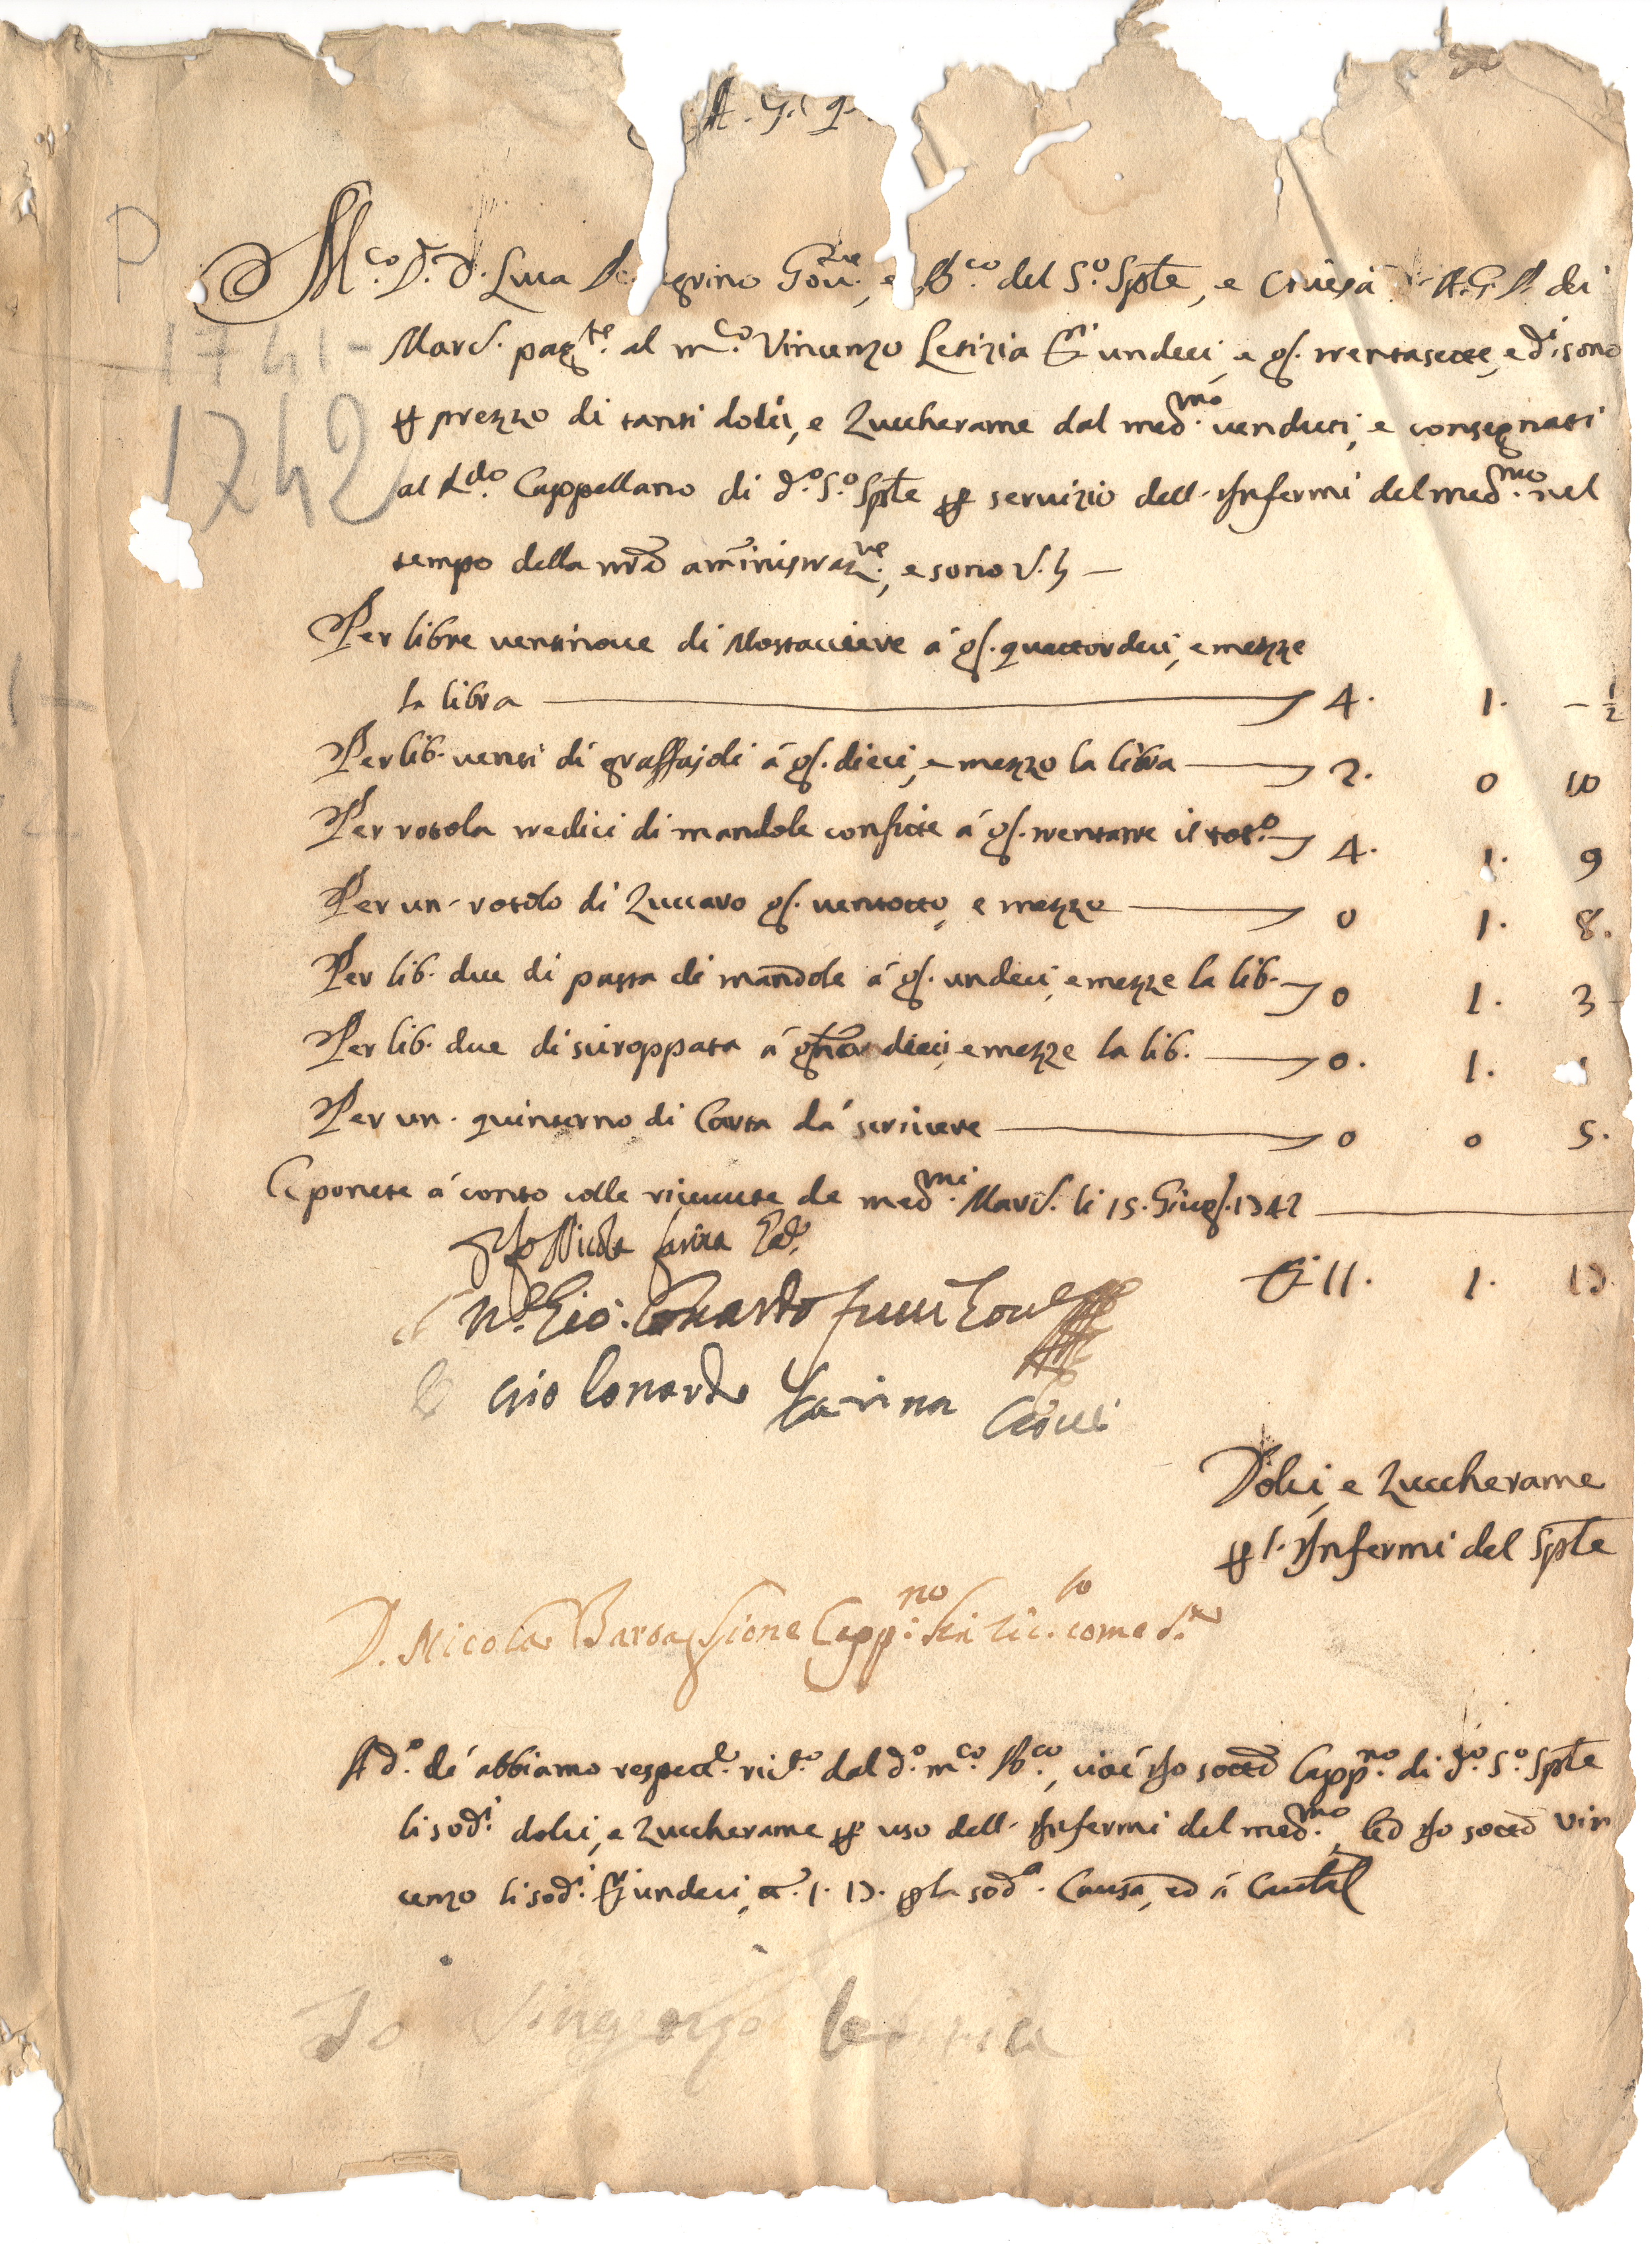 A. G. P.
P
M.co D. D. Luca Pellegrino Gov.re, e B.co del S.o Spte, e Chiesa A.G.P. dei
1741-
Mard. pag.te al m.co Vincenzo Letizia undeci, e g. trentasette, e d.i sono
1742
p prezzo di tanti dolci, e Zuccherame dal med.mo venduti, e consegnati
al R.do Cappellano di d.o S.o Spte p servizio dell'Infermi del med.mo nel
tempo della nrã amministraz.ne, e sono V.h —
Per libre ventinove di Mostacciere á g. quattordeci, e mezze
la libra — 4. 1. - ½
Per lib. venti di graffajoli á g. dieci, e mezzo la libra — 2. 0 10
Per rotola tredici di mandole confitte á g. trentatre il rot.o — 4. 1. 9
Per un rotolo di Zuccaro g. ventotto, e mezzo — 0 1. 8.
Per lib. due di pasta di mandole á g. undeci, e mezze la lib. — 0 1. 3
Per lib. due di sciroppata á dieci, e mezze la lib. — 0. 1. 1
Per un quinterno di Carta dá scrivere — 0 0 5.
E ponete á conto colle ricevute de med.mi Mard. li 15. Giug. 1742 —
Nicola Farina
11. 1. 17.
N.r Gio: Lonardo
Gio Lonardo Farina
Dolci, e Zuccherame
p l'Infermi del Spte
D. Nicola Barbassione Capp.no come s.a
A d.o dí abbiamo respect.e ric.to dal d.o m.co B.co, cioé Io sottõ Capp.no di d.o S.o Spte
li sod.i dolci, e Zuccherame p uso dell'Infermi del med.mo, ed Io sottõ Vin
cenzo li sod.i undeci, 1. 17. p la sod.a Causa, ed á Cautel
Io Vingenzo Letizia